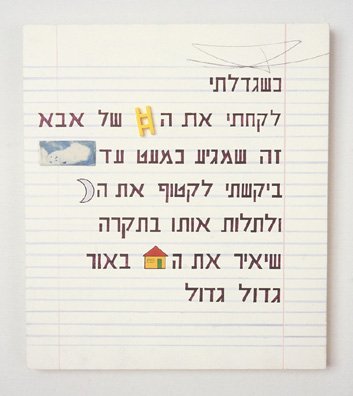 כשגדלתי
לקחתי את ה של אבא
זה שמגיע כמעט עד
ביקשתי לקטוף את ה
ולתלות אותו בתקרה
שיאיר את ה באור
גדול גדול